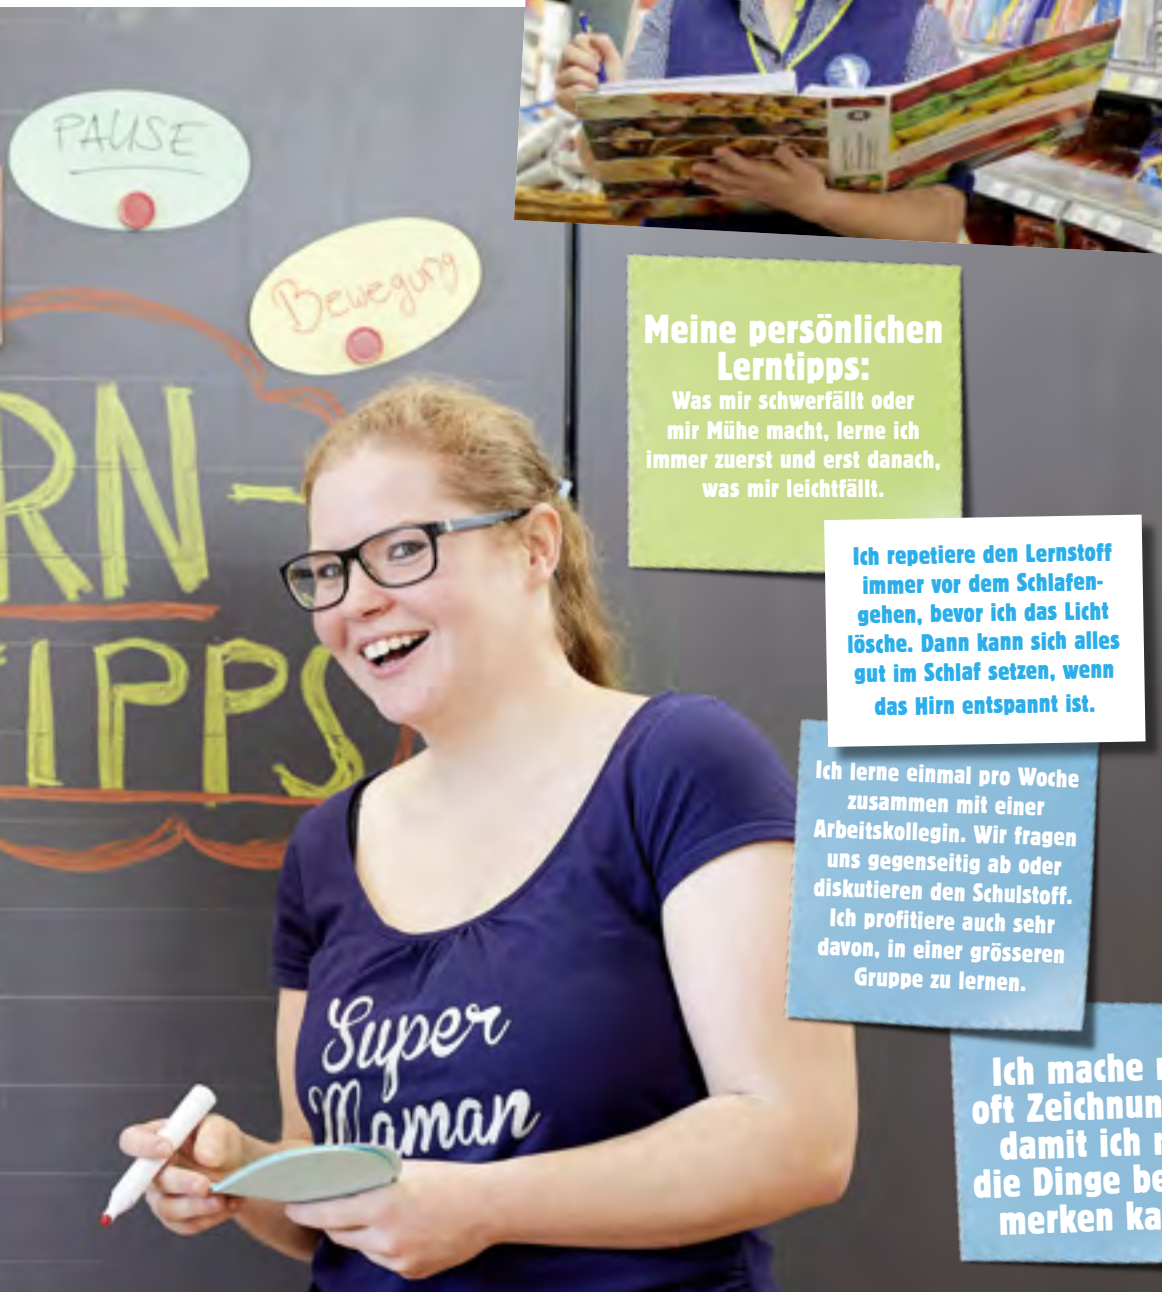 PAUSE
Bewegung
RN-
TIPPS
Super
Maman
Meine persönlichen
Lerntipps:
Was mir schwerfällt oder
mir Mühe macht, lerne ich
immer zuerst und erst danach,
was mir leichtfällt.
Ich repetiere den Lernstoff
immer vor dem Schlafen-
gehen, bevor ich das Licht
lösche. Dann kann sich alles
gut im Schlaf setzen, wenn
das Hirn entspannt ist.
Ich lerne einmal pro Woche
zusammen mit einer
Arbeitskollegin. Wir fragen
uns gegenseitig ab oder
diskutieren den Schulstoff.
Ich profitiere auch sehr
davon, in einer grösseren
Gruppe zu lernen.
Ich mache
oft Zeichnun
damit ich
die Dinge be
merken ka